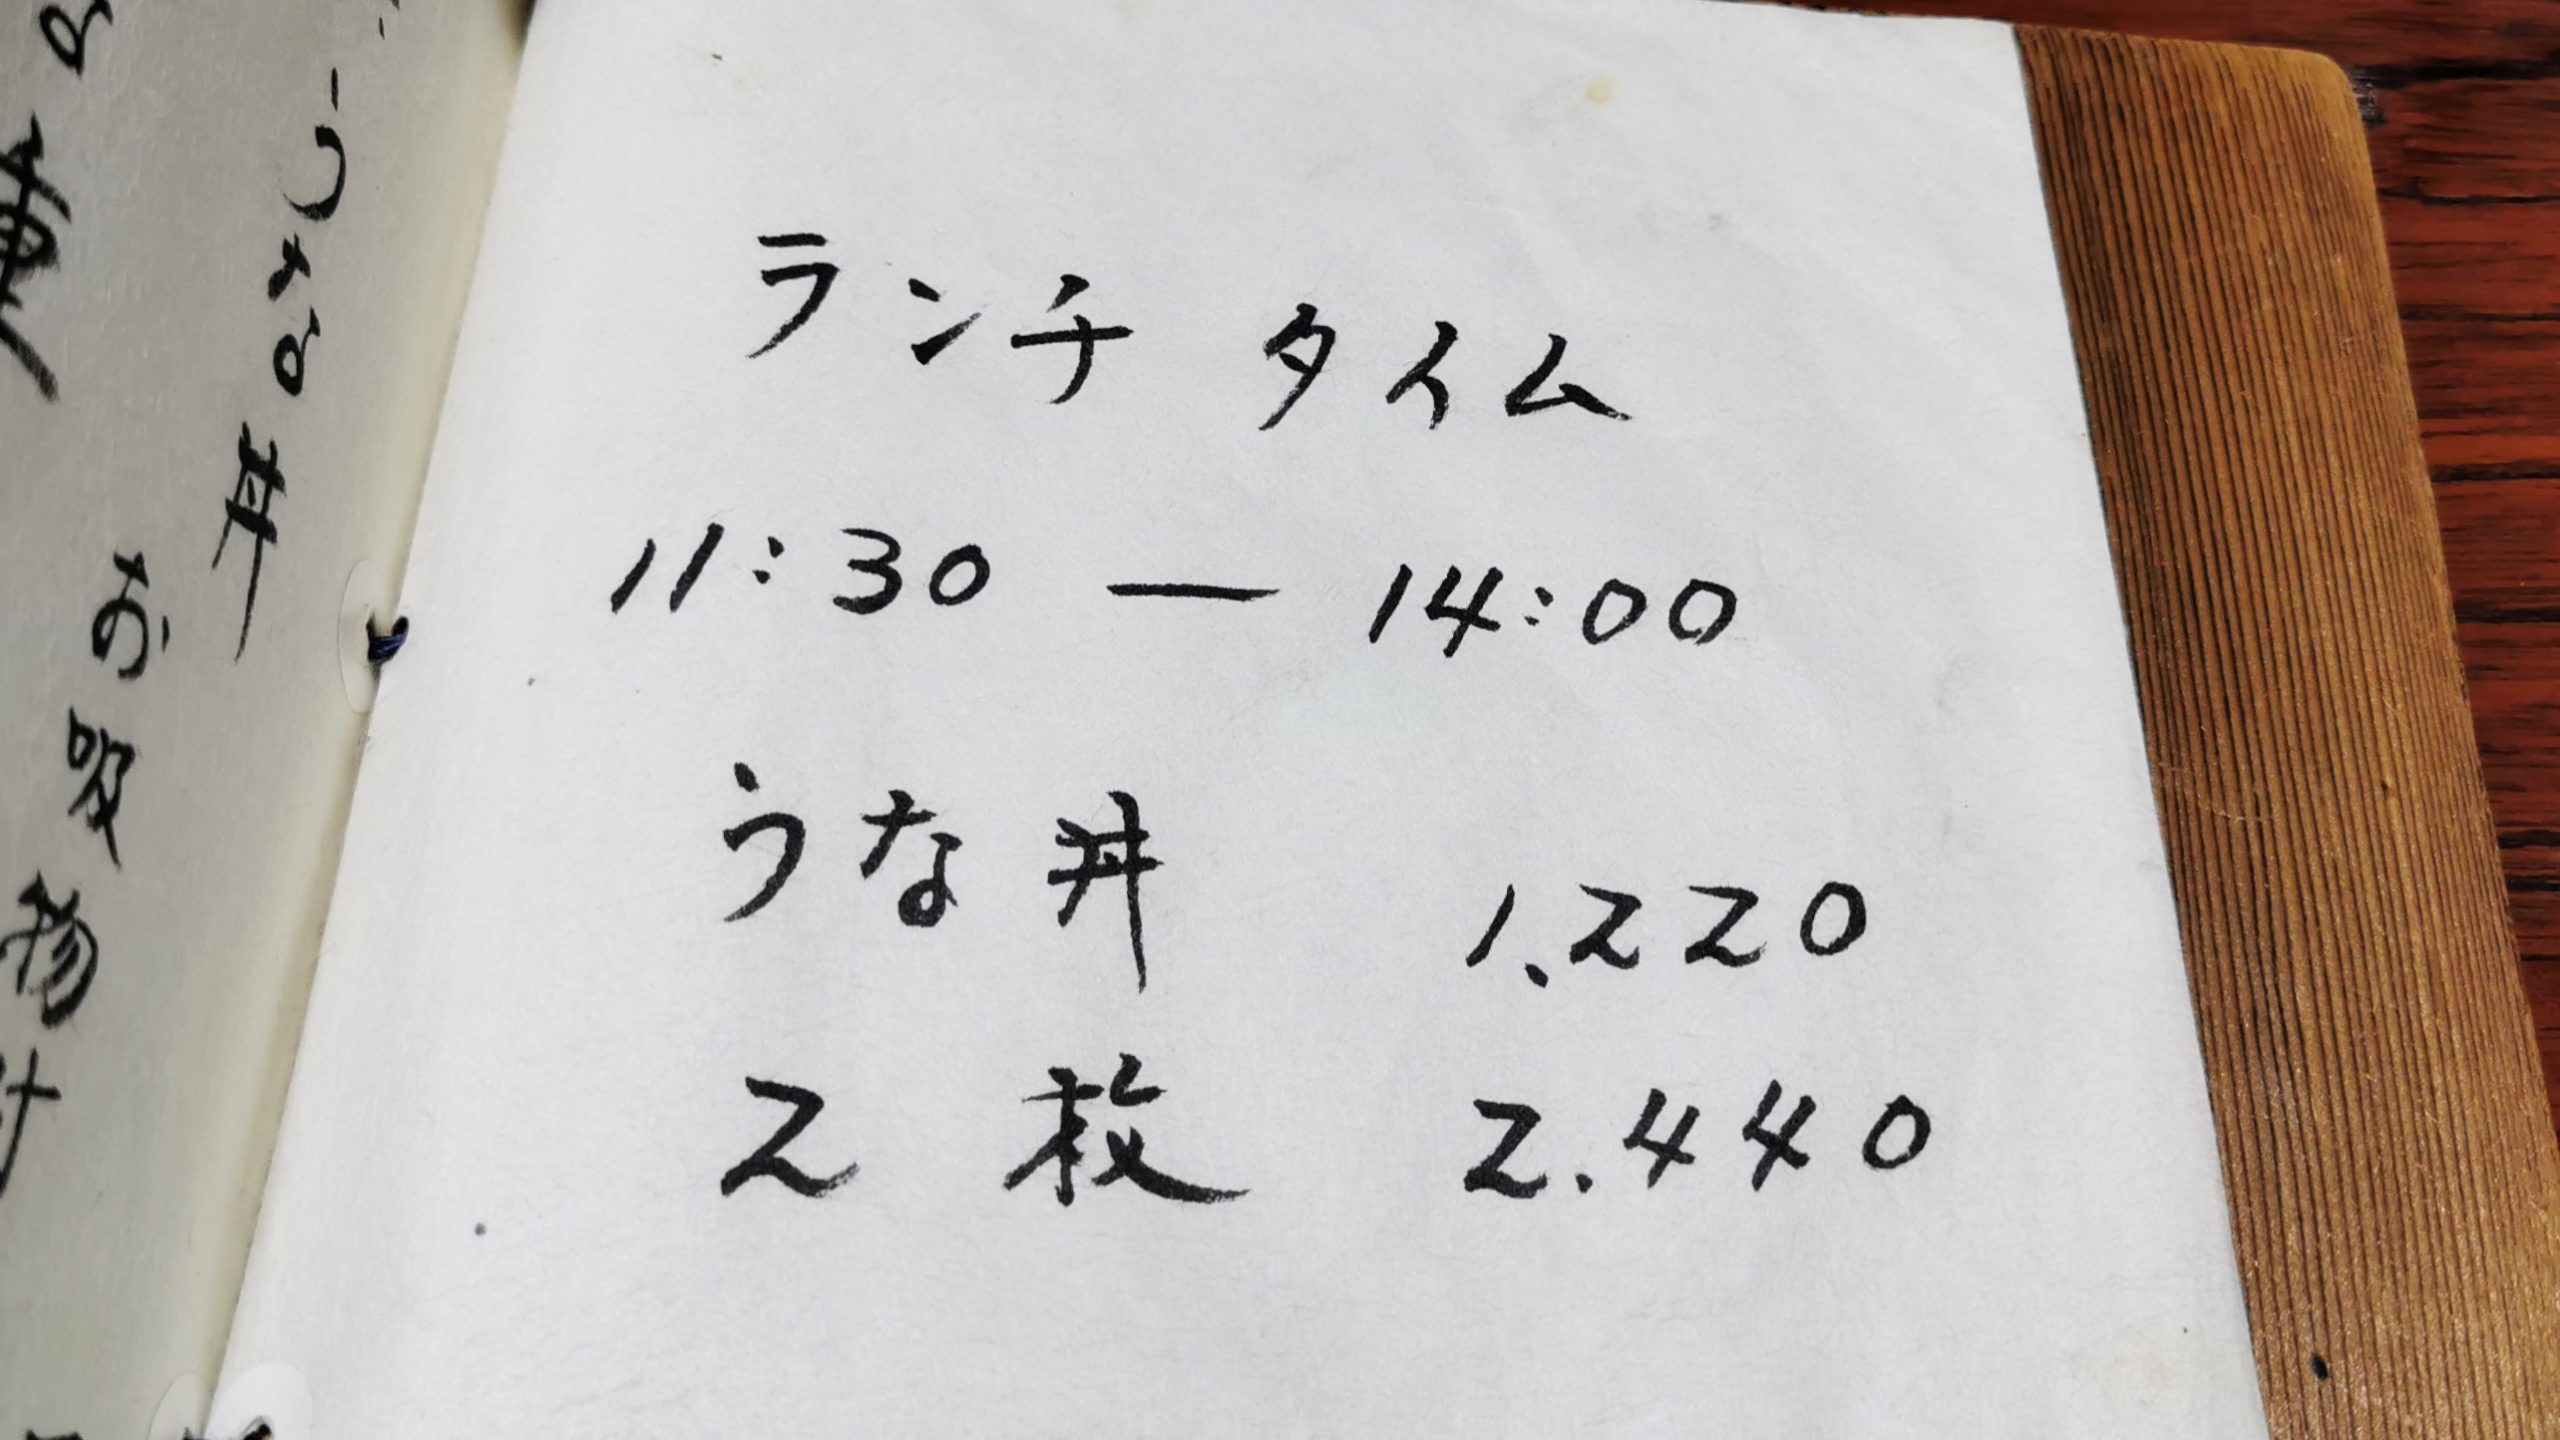 ランチ タイム
11:30 ― 14:00
うな丼 1.220
2枚 2.440
うな丼
お吸物付